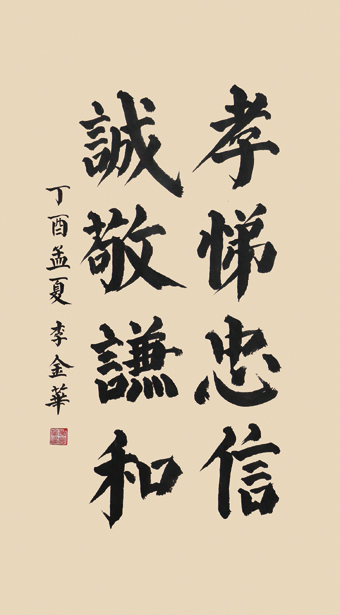 孝悌忠信
誠敬謙和
丁酉孟夏 李金華